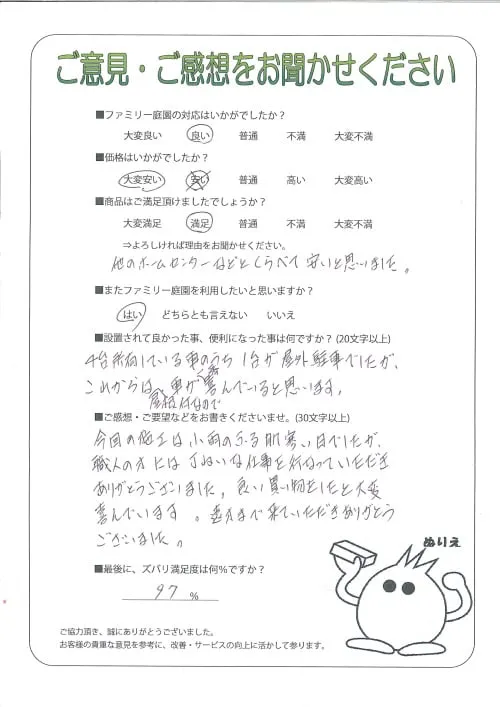 ご意見・ご感想をお聞かせください
■ファミリー庭園の対応はいかがでしたか？
大変良い 良い 普通 不満 大変不満
■価格はいかがでしたか？
大変安い 安い 普通 高い 大変高い
■商品はご満足頂けましたでしょうか？
大変満足 満足 普通 不満 大変不満
⇒よろしければ理由をお聞かせください。
他のホームセンターなどとくらべて安いと思いました。
■またファミリー庭園を利用したいと思いますか？
はい どちらとも言えない いいえ
■設置されて良かった事、便利になった事は何ですか？（20文字以上）
4台所有している車のうち1台が屋外駐車でしたが、
これからは、車が喜んでいると思います。
屋根付なので
■ご感想・ご要望などをお書きくださいませ。（30文字以上）
今回の施工は小雨のふる肌寒い日でしたが、
職人の方にはていねいな仕事を行なっていただき
ありがとうございました。良い買い物をしたと大変
喜んでいます。遠方まで来ていただきありがとう
ございました。
ぬりえ
■最後に、ズバリ満足度は何％ですか？
97 ％
ご協力頂き、誠にありがとうございました。
お客様の貴重な意見を参考に、改善・サービスの向上に活かして参ります。